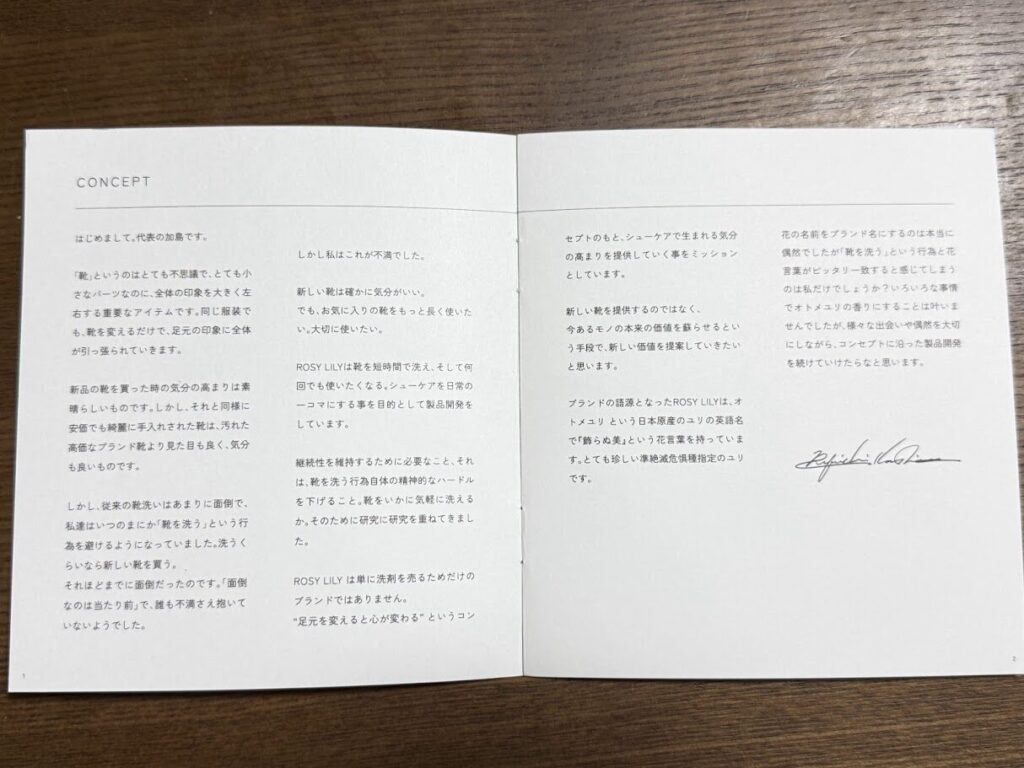 CONCEPT
はじめまして。代表の加島です。
「靴」というのはとても不思議で、とても小
さなパーツなのに、全体の印象を大きく左
右する重要なアイテムです。同じ服装で
も、靴を変えるだけで、足元の印象に全体
が引っ張られていきます。
新品の靴を買った時の気分の高まりは素
晴らしいものです。しかし、それと同様に
安価でも綺麗に手入れされた靴は、汚れた
高価なブランド靴より見た目も良く、気分
も良いものです。
しかし、従来の靴洗いはあまりに面倒で、
私達はいつのまにか「靴を洗う」という行
為を避けるようになっていました。洗うく
らいなら新しい靴を買う。
それほどまでに面倒だったのです。「面倒
なのは当たり前」で、誰も不満さえ抱いて
いないようでした。
しかし私はこれが不満でした。
新しい靴は確かに気分がいい。
でも、お気に入りの靴をもっと長く使いた
い。大切に使いたい。
ROSY LILYは靴を短時間で洗え、そして何
回でも使いたくなる。シューケアを日常の
一コマにする事を目的として製品開発を
しています。
継続性を維持するために必要なこと、それ
は、靴を洗う行為自体の精神的なハードル
を下げること。靴をいかに気軽に洗える
か。そのために研究に研究を重ねてきまし
た。
ROSY LILY は単に洗剤を売るためだけの
ブランドではありません。
“足元を変えると心が変わる” というコン
1
セプトのもと、シューケアで生まれる気分
の高まりを提供していく事をミッション
としています。
新しい靴を提供するのではなく、
今あるモノの本来の価値を蘇らせるとい
う手段で、新しい価値を提案していきたい
と思います。
ブランドの語源となったROSY LILYは、オ
トメユリ という日本原産のユリの英語名
で『飾らぬ美』という花言葉を持っていま
す。とても珍しい準絶滅危惧種指定のユリ
です。
花の名前をブランド名にするのは本当に
偶然でしたが「靴を洗う」という行為と花
言葉がピッタリ一致すると感じてしまう
のは私だけでしょうか？いろいろな事情
でオトメユリの香りにすることは叶いま
せんでしたが、様々な出会いや偶然を大切
にしながら、コンセプトに沿った製品開発
を続けていけたらなと思います。
2